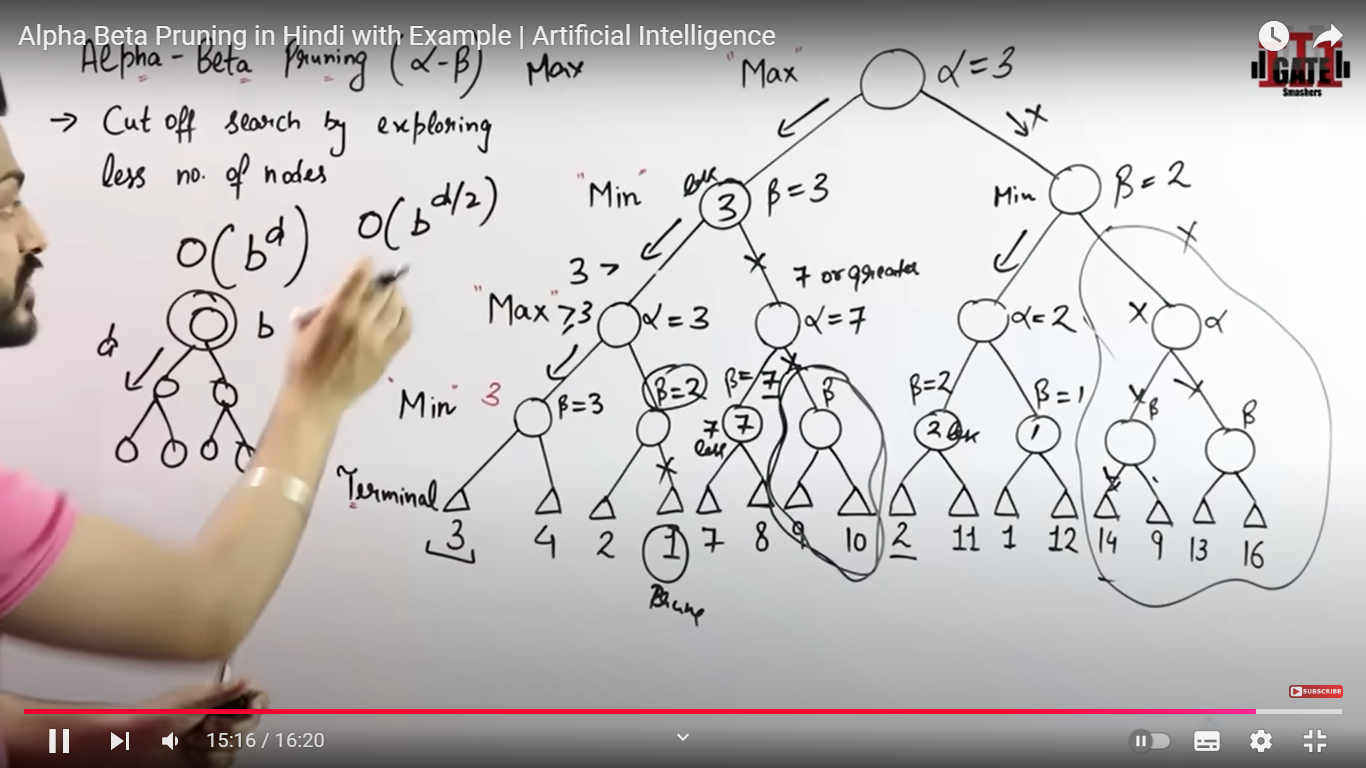 Alpha Beta Pruning in Hindi with Example | Artificial Intelligence
Alpha-Beta Pruning (α-β) Max
→ Cut off search by exploring
less no. of nodes
O(b^d) O(b^d/2)
d b
"Max" α=3
x
GATE
Smashers
"Min" 3 β=3
Min β=2
x
3 >
x 7 or greater
"Max" ≥3 α=3 α=7 α=2 x α
"Min" 3 β=3 β=2 β=7 β β=2 β=1 β β
7 less 7 2 1
Terminal
3 4 2 1 7 8 9 10 2 11 1 12 14 9 13 16
Prune
SUBSCRIBE
15:16 / 16:20